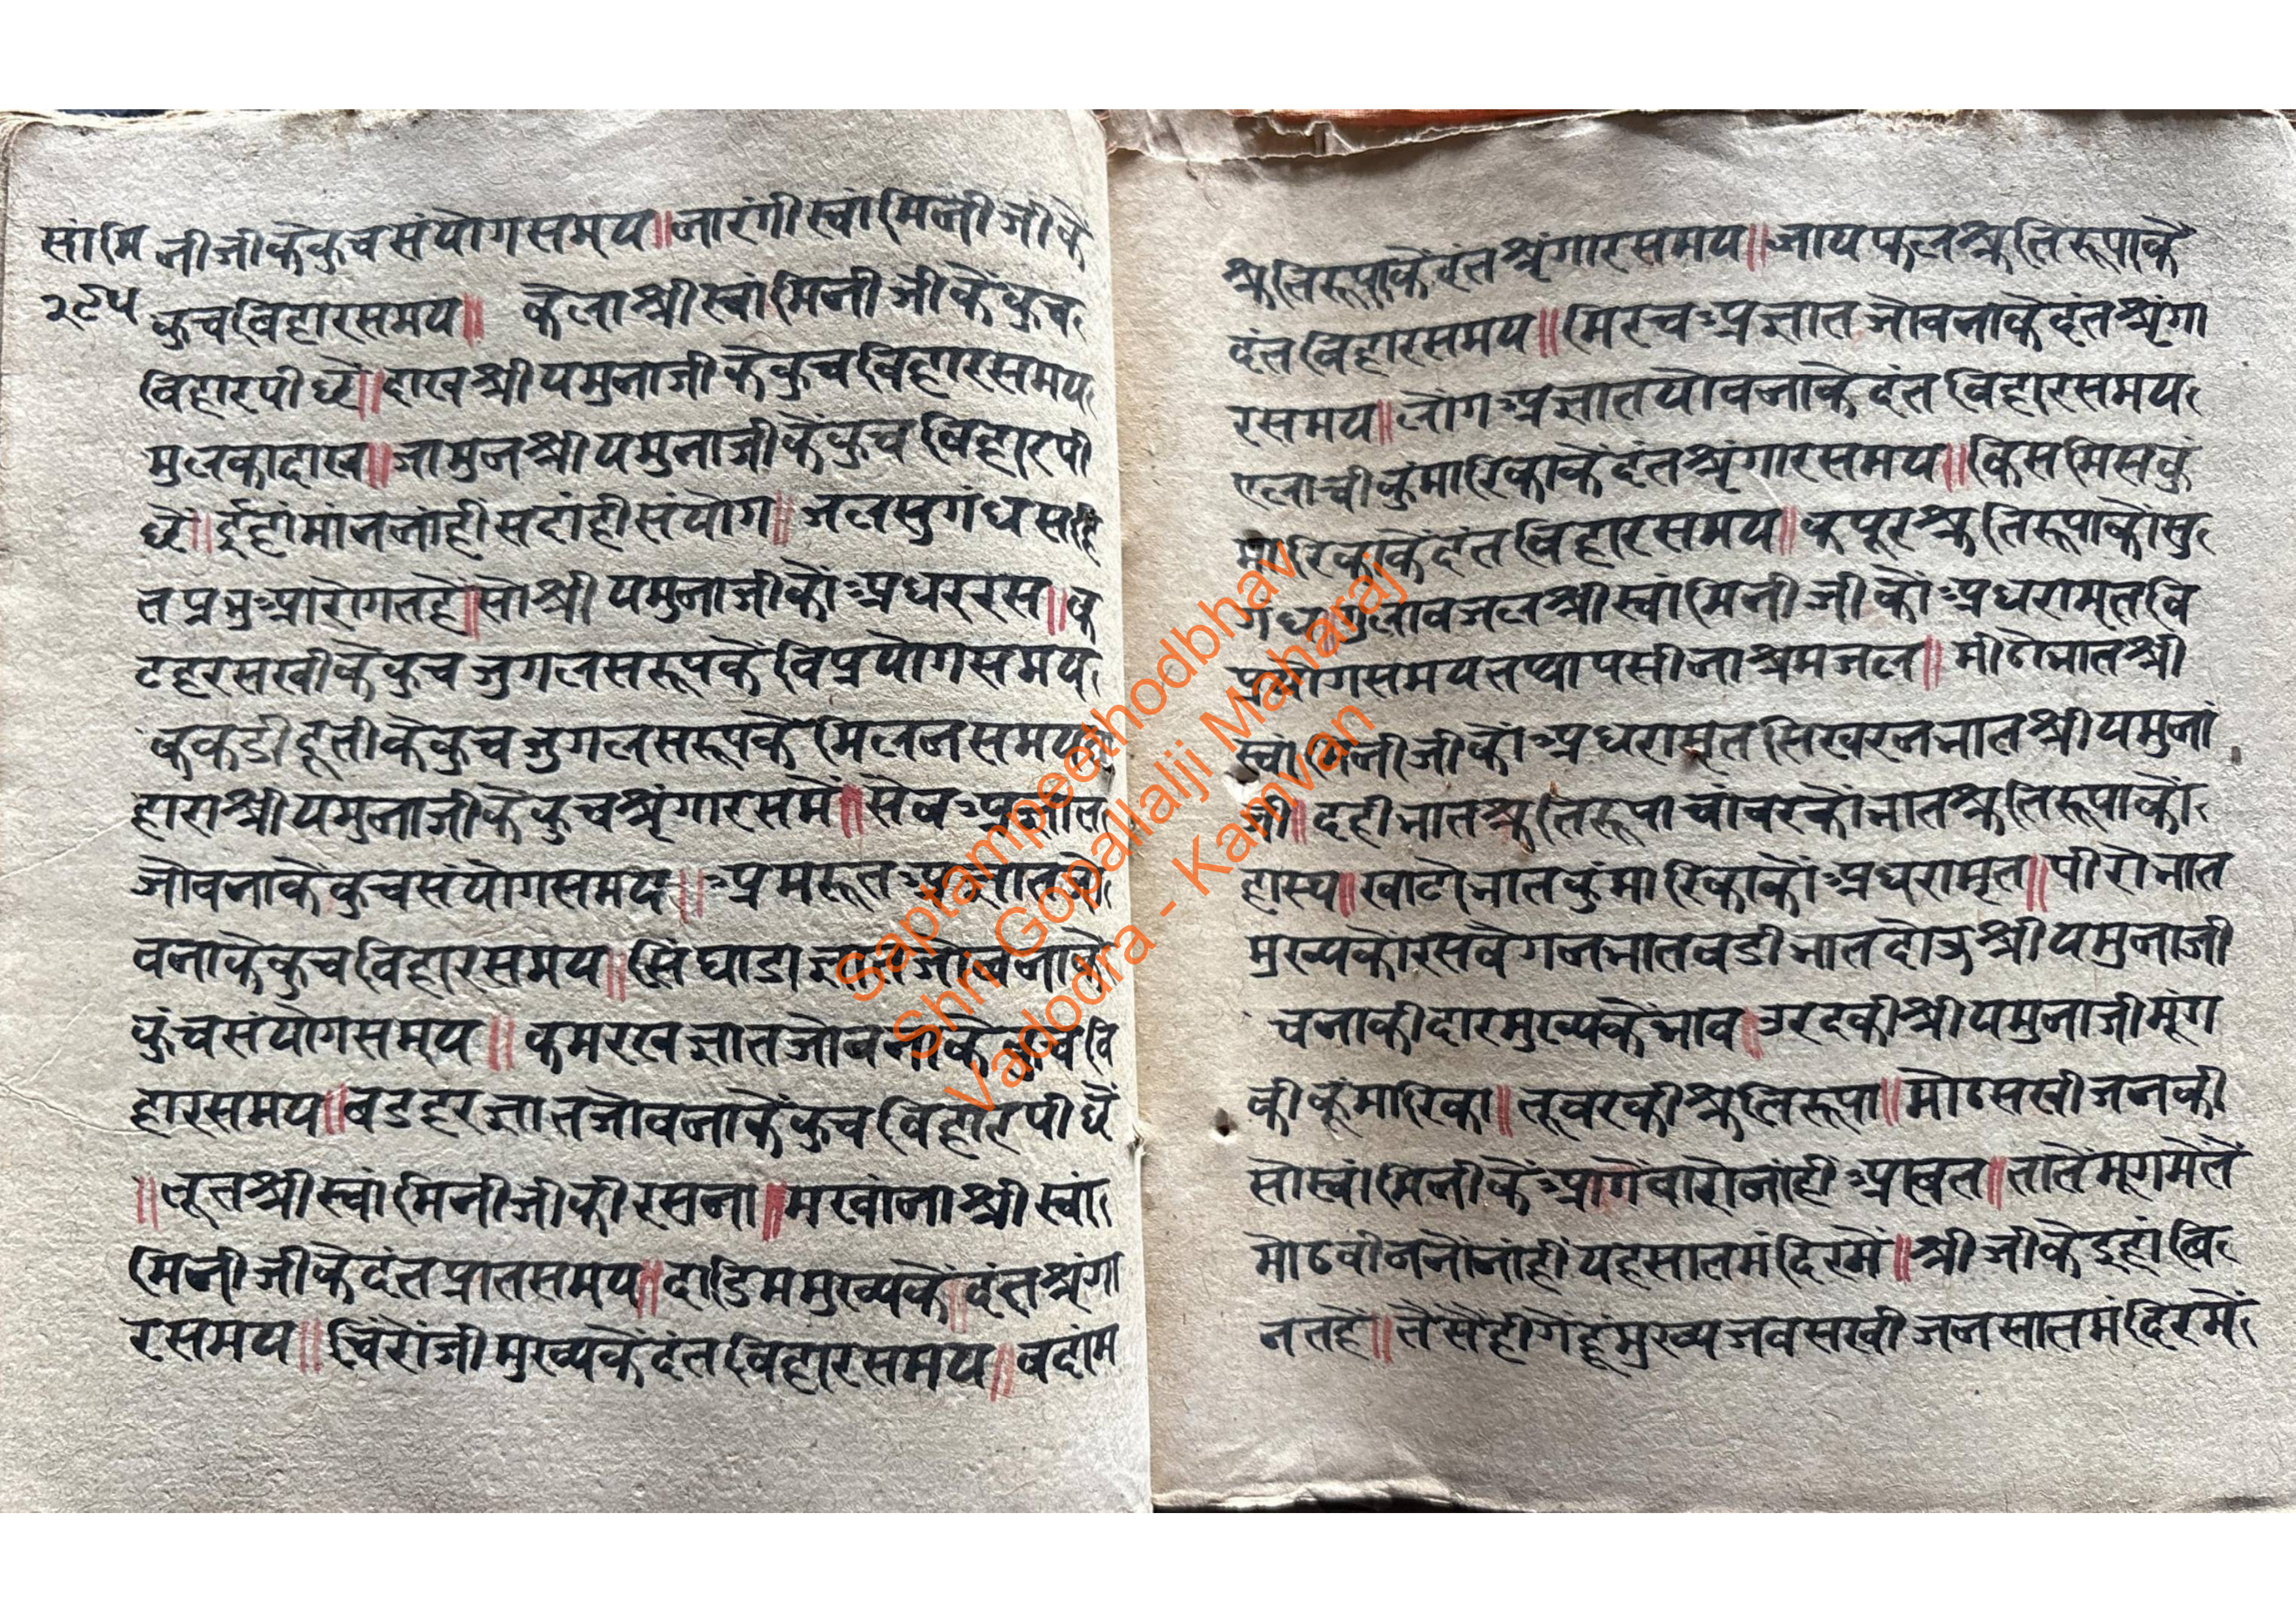 सांमि
२९५
नीजीकेकुचसंयोगसमय॥नारंगीस्वांमिनीजीके
कुचविहारसमय॥ केलाश्रीस्वांमिनीजीकेकुच
विहारपीछें॥दाखश्रीयमुनाजीकेकुचविहारसमय
मुनकादाख॥जामुनश्रीयमुनाजीकेंकुचविहारपी
छें॥ईहांमांननांहींसदांहींसंयोग॥जलसुगंधसहि
तप्रभुआरोगतहें॥सोश्रीयमुनाजीकोंअधररस॥क
टहरसखीकेकुचजुगलसरूपकेंविप्रयोगसमय
ककडीदूतीकेकुचजुगलसरूपकेंमिलनसमय
हाराश्रीयमुनाजीकेकुचश्रृंगारसमें॥सेब
जोवनाकेंकुचसंयोगसमय॥अमरूत
वनाकेकुचविहारसमय॥सिंघाडाज्ञातजोवनाके
कुंचसंयोगसमय॥कमरखज्ञातजोवनाकेकुचवि
हारसमय॥बडहरज्ञातजोवनाकेंकुचविहारपीछें
॥तूतश्रीस्वांमिनीजीकीरसना॥मखांनाश्रीस्वां
मिनीजीकेदंतप्रातसमय॥दाडिममुख्यकें॥दंतश्रृंगा
रसमय॥चिंरोंजीमुख्यकेंदंतविहारसमय॥बदांम
श्रुतिरूपाकेंदंतश्रृंगारसमय॥जायफलश्रुतिरूपाके
दंतविहारसमय॥मिरचअज्ञातजोवनाकेदंतश्रृंगा
रसमय॥लोंगअज्ञातयोवनाकेदंतविहारसमय
एलाचीकुंमारिकाकेंदंतश्रृंगारसमय॥किसमिसकुं
मारिकाकेंदंतविहारसमय॥कपूरश्रुतिरूपाकोंसु
गंधगुलाबजलश्रीस्वांमिनीजीकोंअधरामृतवि
प्रयोगसमयतथापसीनाश्रमजल॥मीठोभातश्री
स्वांमिनीजीकोंअधरामृतसिखरनभातश्रीयमुनां
जी॥दहीभातश्रुतिरूपाचांवरकोंभातश्रुतिरूपाकों
हास्य॥खाटोभातकुंमारिकाकोंअधरामृत॥पीरोभात
मुख्यकोंरसबेंगनभातवडीभातदोऊश्रीयमुनाजी
चनाकीदारमुख्यकेंभाव॥उरदकीश्रीयमुनाजीमूंग
कीकूंमारिका॥तूवरकीश्रुतिरूपा॥मोठसखीजनकी
सोस्वांमिनीकेंआगेंवारोनांहींआवत॥तातेंमूगमेंतें
मोठवीननोंनांहींयहसातमंदिरमें॥श्रीजीकेइहांवि
नतहें॥तेंसेंहीगेंहूंमुख्यजवसखीजनसातमंदिरमें
Saptampeethodbhav
Shri Gopallalji Maharaj
Vadodra - Kamvan